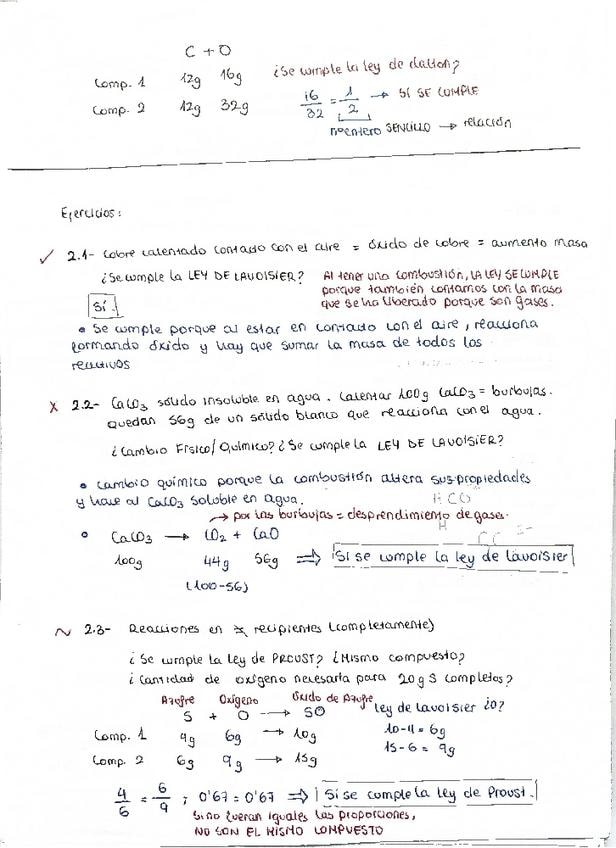 C + O
Comp. 1 12g 16g ¿Se cumple la ley de dalton?
Comp. 2 12g 32g 16/32 = 1/2 → SÍ SE CUMPLE
nº entero SENCILLO → relación
Ejercicios:
✓ 2.1- Cobre calentado contacto con el aire = óxido de cobre = aumento masa
¿Se cumple la LEY DE LAVOISIER? Al tener una combustión, LA LEY SE CUMPLE
porque también contamos con la masa
que se ha liberado porque son gases.
Sí.
• Se cumple porque al estar en contacto con el aire, reacciona
formando óxido y hay que sumar la masa de todos los
reactivos
X 2.2- CaCO3 sólido insoluble en agua. Calentar 100g CaCO3 = burbujas.
Quedan 56g de un sólido blanco que reacciona con el agua.
¿Cambio Físico/Químico? ¿Se cumple la LEY DE LAVOISIER?
• Cambio químico porque la combustión altera sus propiedades
y hace al CaCO3 soluble en agua.
→ por las burbujas = desprendimiento de gases.
• CaCO3 → CO2 + CaO
100g 44g 56g ⇒ Sí se cumple la ley de Lavoisier
(100-56)
~ 2.3- Reacciones en recipientes (completamente)
¿Se cumple la Ley de PROUST? ¿Mismo compuesto?
¿Cantidad de oxígeno necesaria para 20g S completos?
Azufre Oxígeno Óxido de Azufre
S + O → SO Ley de lavoisier ¿O?
Comp. 1 4g 6g → 10g 10-4 = 6g
Comp. 2 6g 9g → 15g 15-6 = 9g
4/6 = 6/9 ; 0'67 = 0'67 ⇒ Sí se cumple la ley de Proust.
Si no fueran iguales las proporciones,
NO SON EL MISMO COMPUESTO